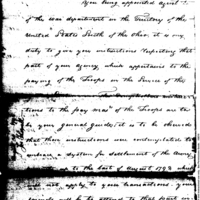 You being appointed Agent
of the war department in the Territory of the
United States South of the Ohio it is my
duty to give you instructions respecting that
part of your Agency which appertains to the
paying of the Troops in the Service of the
tions to the pay mas of the Troops are to
be your general guide, it is to be observed
that these instructions are contemplated to
embrace a System for Settlement of the Army
up to the last of August 1792 which
are not apply to your transactions. your
will be to attend to that part